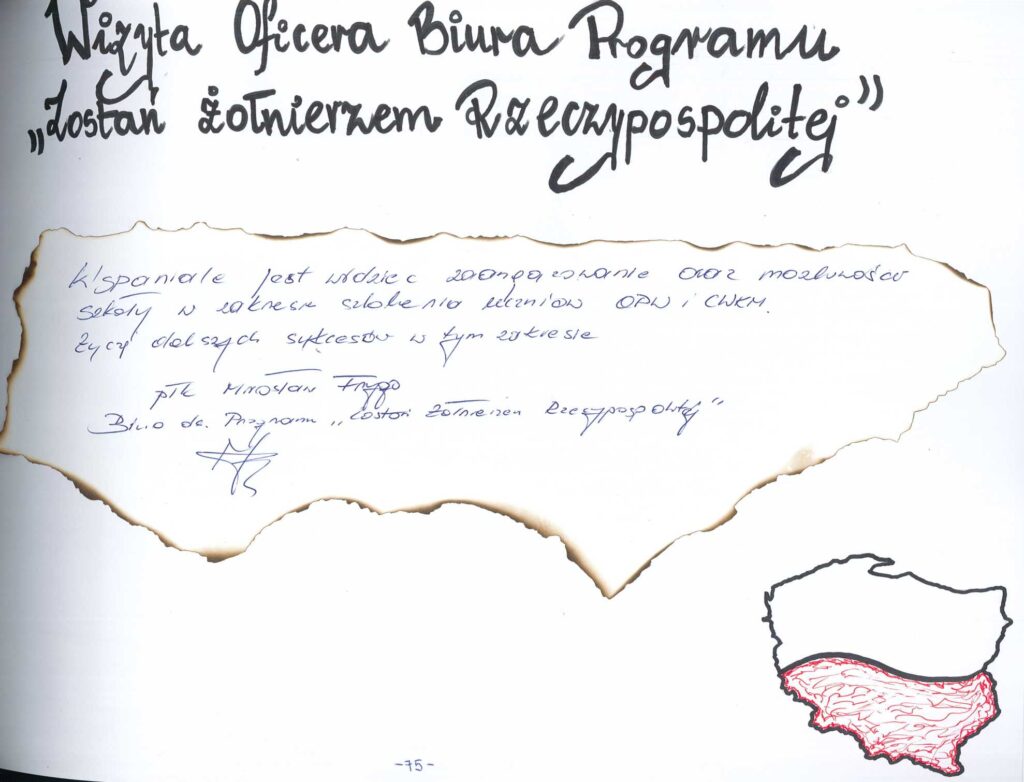 Wizyta Oficera Biura Programu
„Zostań żołnierzem Rzeczypospolitej”
Wspaniale jest widzieć zaangażowanie oraz możliwości
szkoły w zakresie szkolenia uczniów OPW i CWKM.
Życzę dalszych sukcesów w tym zakresie
płk Mirosław
Biuro ds. Programu „Zostań Żołnierzem Rzeczypospolitej”
-75-